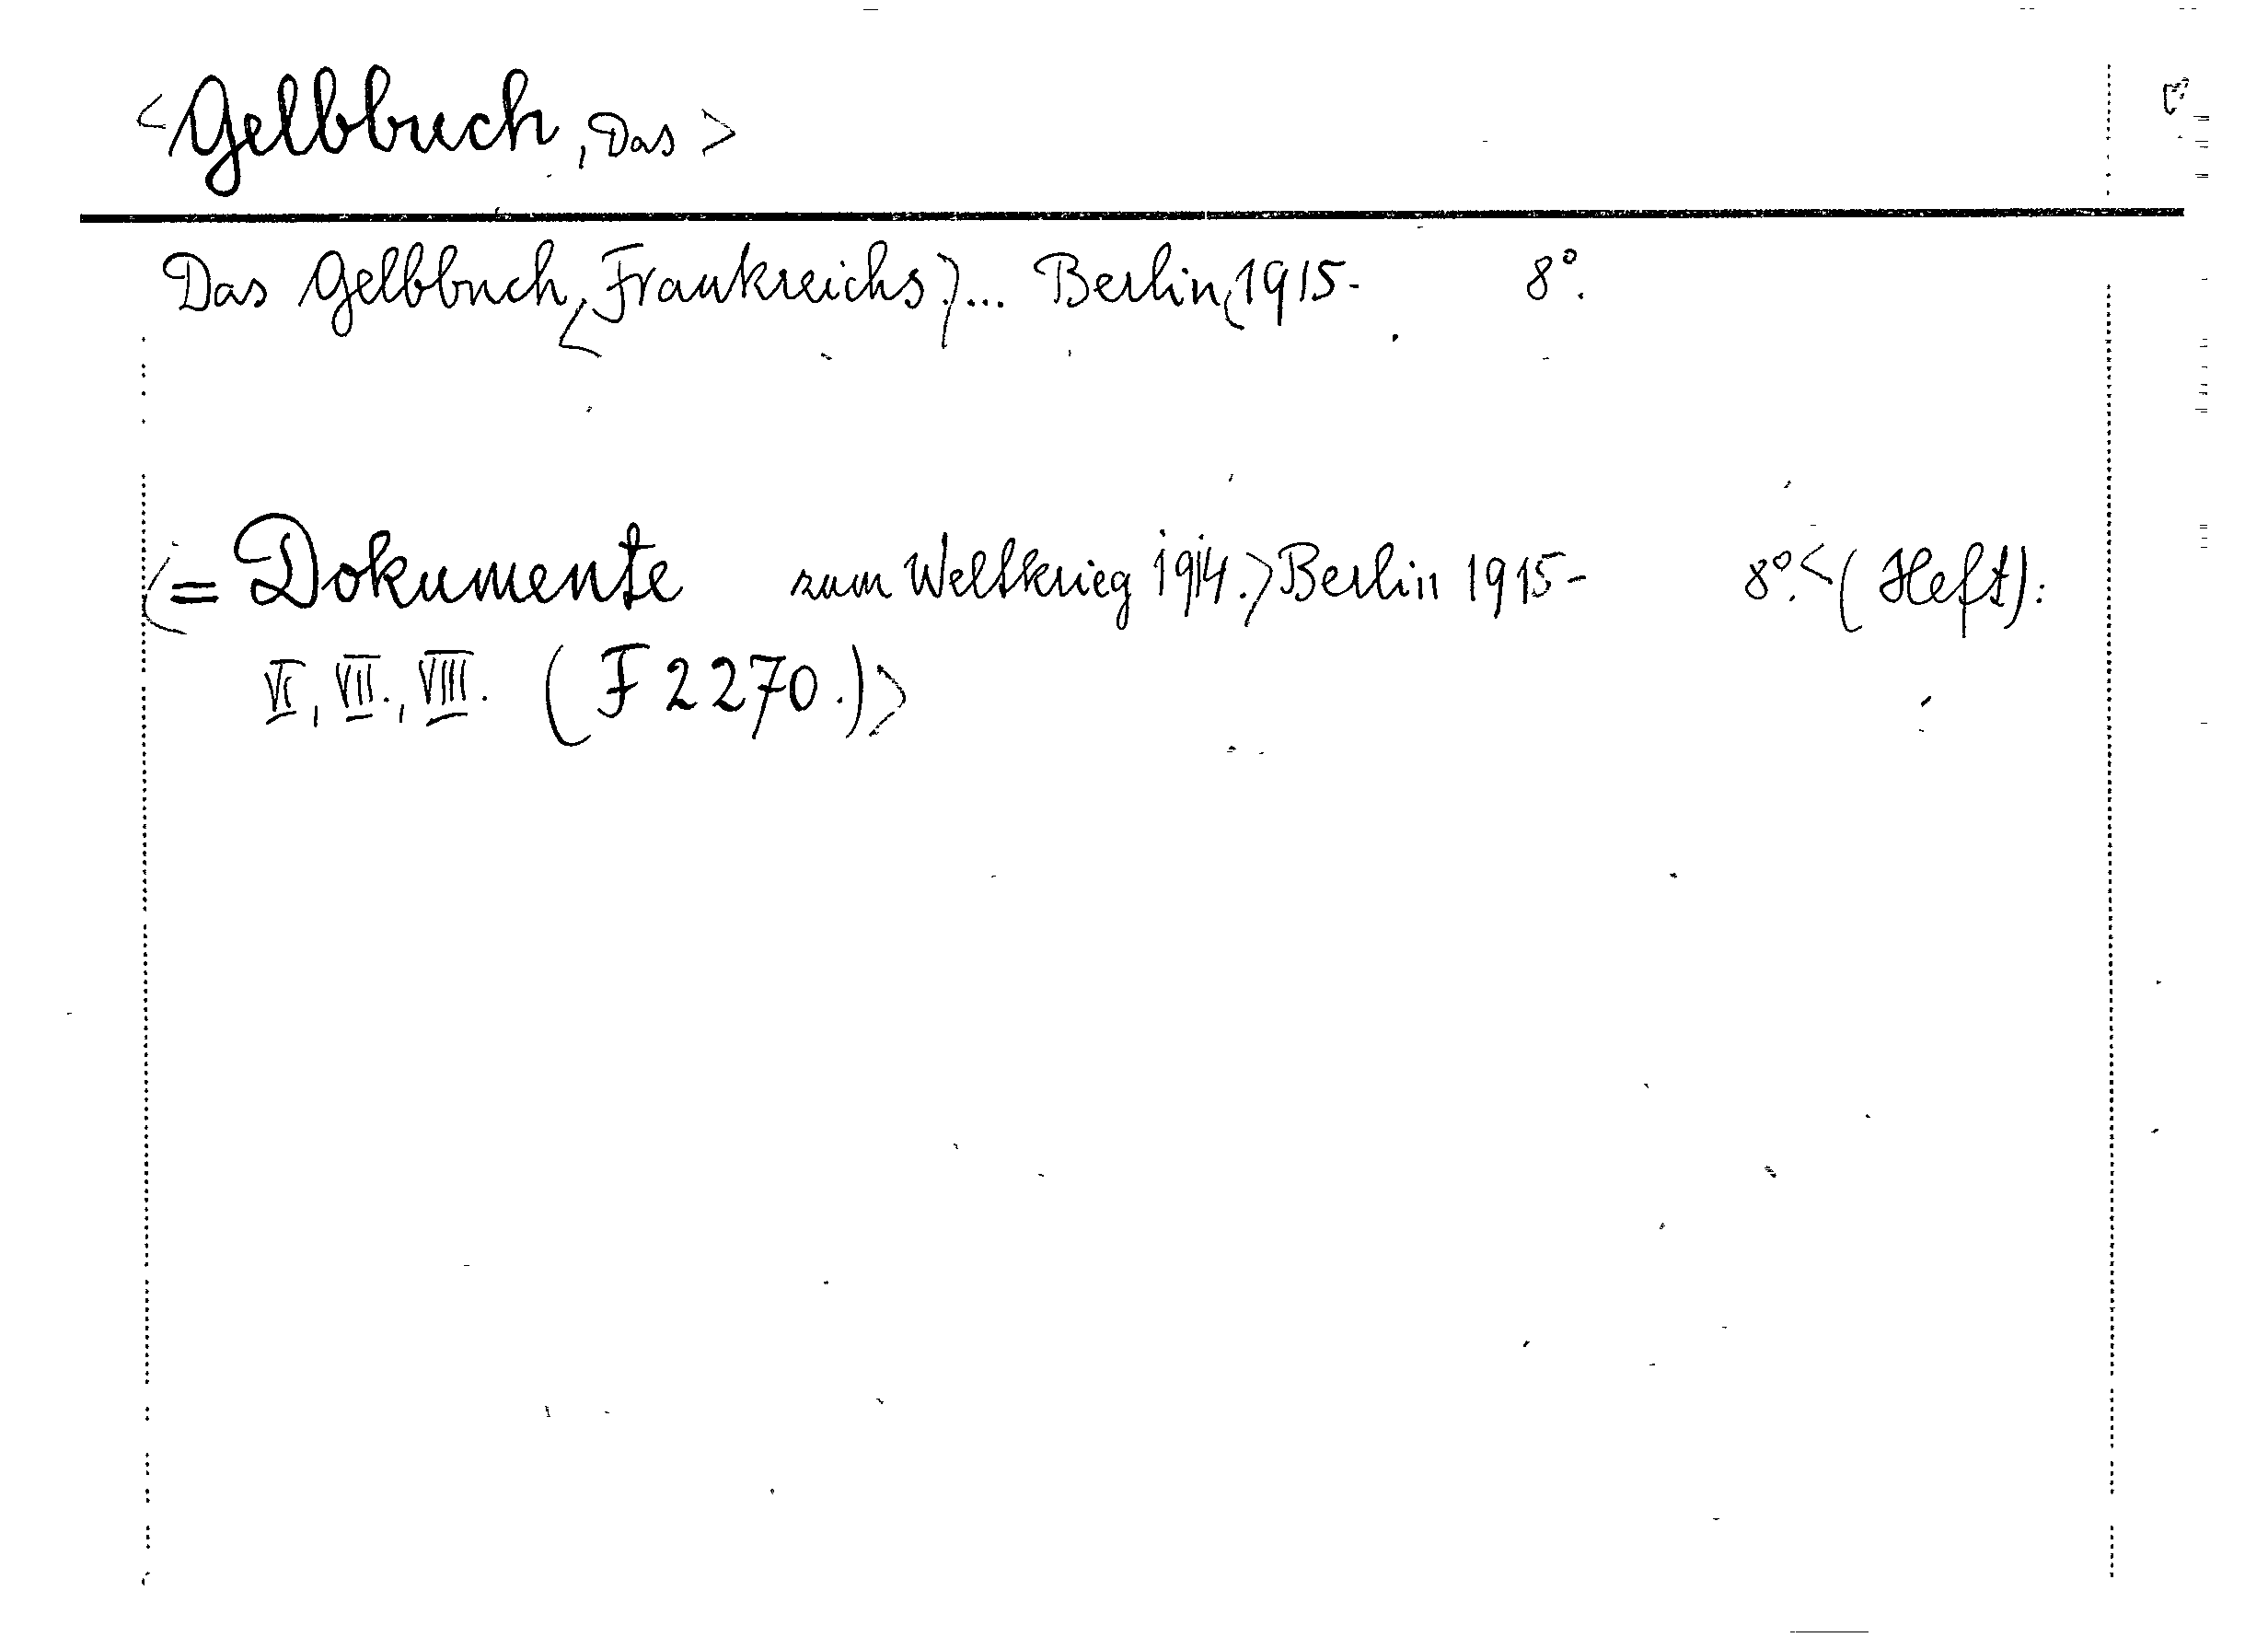 <Gelbbuch, Das>
Das Gelbbuch <Frankreichs.> ... Berlin <1915- 8°.
<= Dokumente zum Weltkrieg 1914.> Berlin 1915- 8°. <(Heft):
VI, VII., VIII. (F 2270.)>